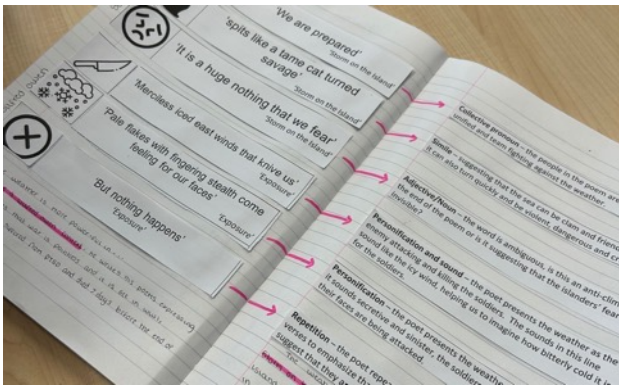 'We are prepared'
'Storm on the Island'
'spits like a tame cat turned
savage'
'Storm on the Island'
'It is a huge nothing that we fear'
'Storm on the Island'
'Merciless iced east winds that knive us'
'Exposure'
'Pale flakes with fingering stealth come
feeling for our faces'
'Exposure'
'But nothing happens'
'Exposure'
weather is most powerful in
this poems expressing
this war is pointless and it is
Collective pronoun – the people in the poem are
unified and team fighting against the weather.
Simile – suggesting that the sea can be clam and friend
it can also turn quickly and be violent, dangerous and cr
Adjective/Noun – the word is ambiguous, is this an anti-clim
the end of the poem or is it suggesting that the islanders' fear
invisible?
Personification and sound – the poet presents the weather as the
enemy attacking and killing the soldiers. The sounds in this line
sound like the icy wind, helping us to imagine how bitterly cold it i
for the soldiers.
Personification – the poet presents the weathe
it sounds secretive and sinister, the soldiers
their faces are being attacked.
Repetition – the poet repe
verses to emphasize tha
suggest that they a